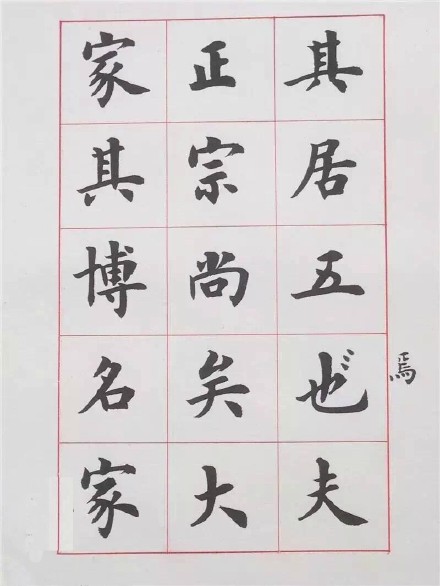 其居五也夫
焉
正宗尚矣大
家其博名家